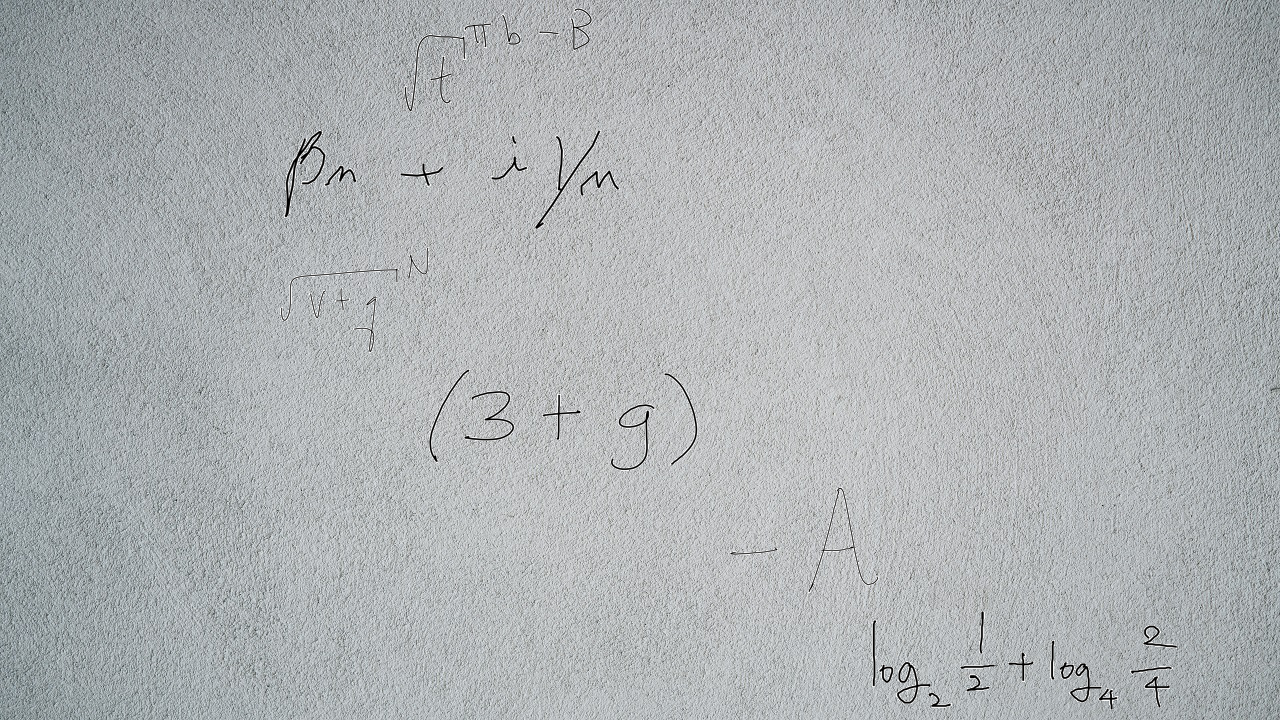 √t^{πb - B}
β_n + iγ_n
√(v + q)^N
(3 + g)
- A
log_2 1/2 + log_4 2/4